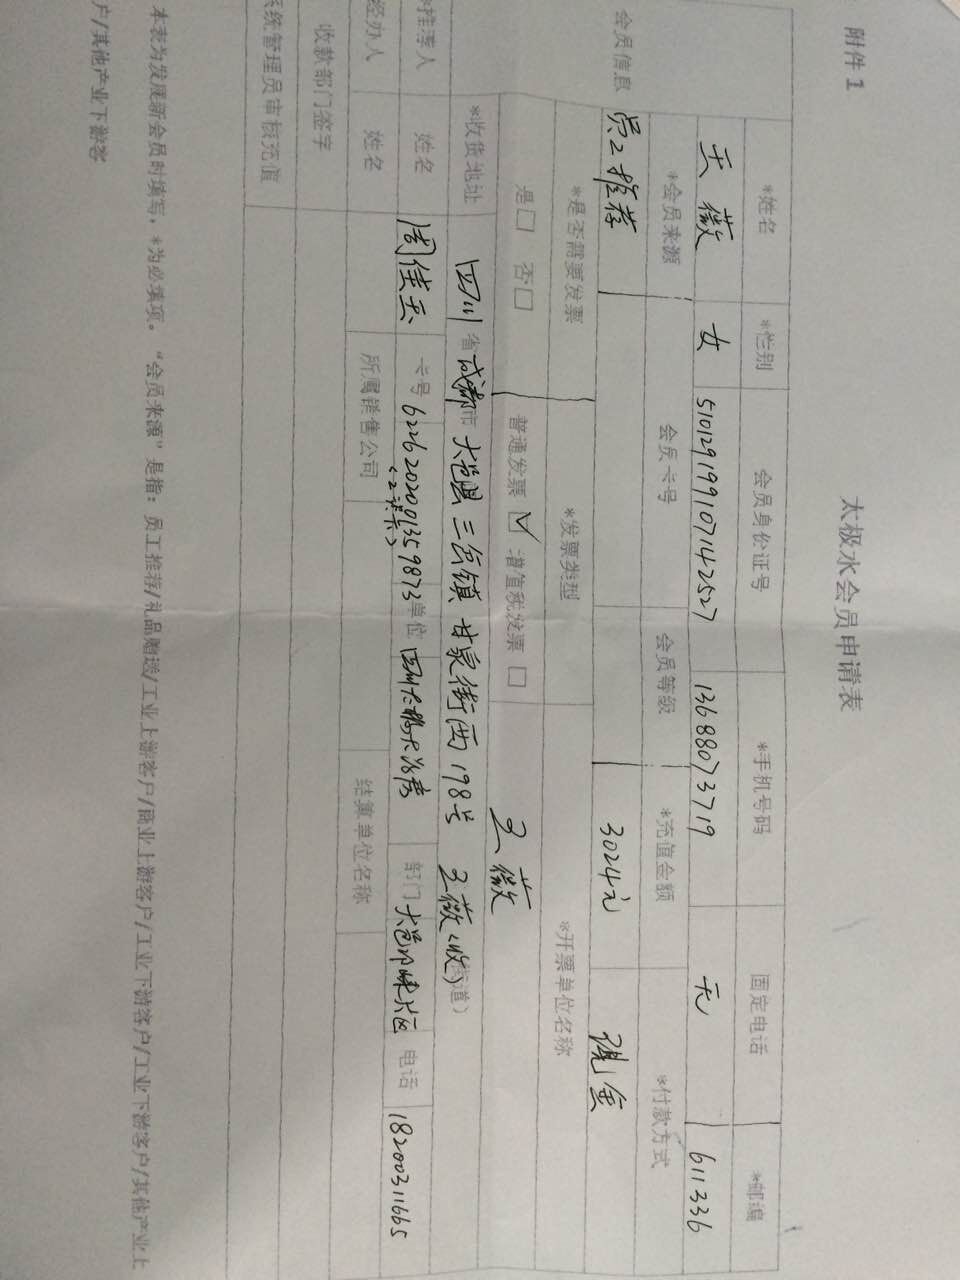 附件 1
太极水会员申请表
会员信息
*姓名 *性别 会员身份证号 *手机号码 固定电话 *邮编
王薇 女 510129199107142527 13688073719 无 611336
*会员来源 会员卡号 会员等级 *充值金额 *付款方式
员工推荐 3024元 现金
*是否需要发票 *发票类型 *开票单位名称
是□ 否□ 普通发票☑ 增值税发票 □ 王薇
*收货地址 四川省成都市大邑县三岔镇甘泉街西198号 王薇(收) 道)
*推荐人 姓名 周佳玉 卡号 6226202001359873 单位 部门 电话 18200311665
经办人 姓名 所属销售公司 结算单位名称
收款部门签字
系统管理员审核充值
本表为发展新会员时填写，*为必填项。“会员来源”是指：员工推荐/礼品赠送/工业上游客户/商业上游客户/工业下游客户/工业下游客户/其他产业上
户/其他产业下游客